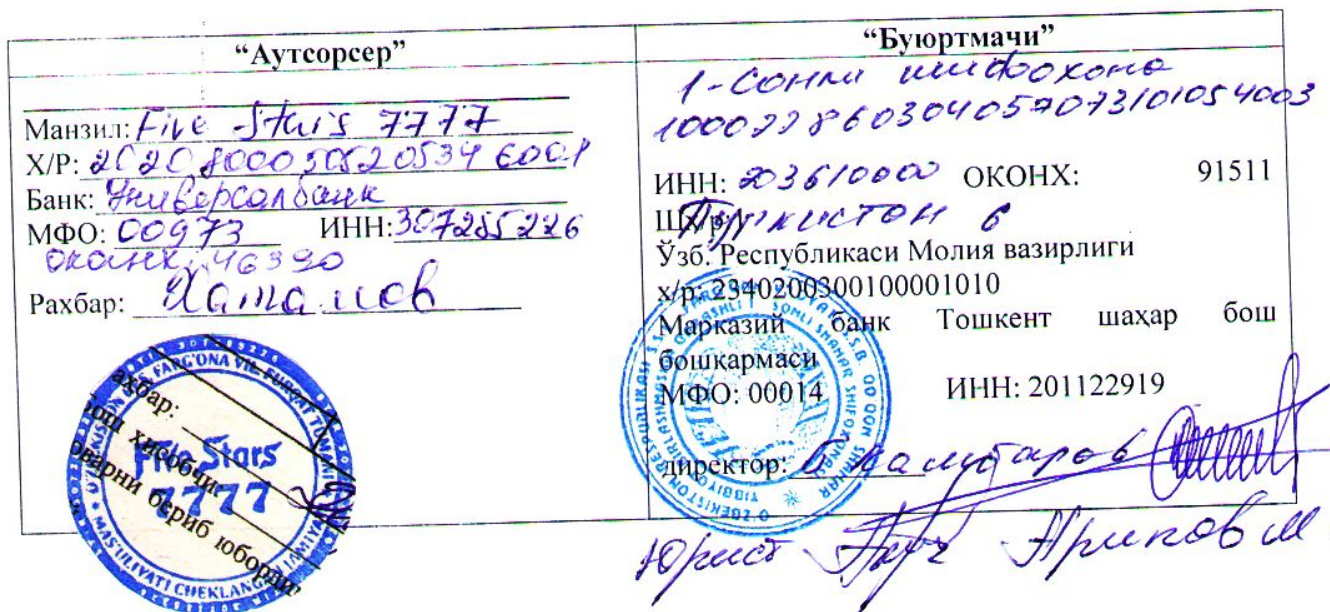 “Аутсорсер”
Манзил: Five Stars 7777
Х/Р: 20208000505205346001
Банк: Универсалбанк
МФО: 00973 ИНН: 307255226
ОКОНХ: 46390
Рахбар: Хатамов
“Буюртмачи”
1-Сонли шифохона
100022860304057073101054003
ИНН: 203610000 ОКОНХ: 91511
Туркистон 6
Ўзб. Республикаси Молия вазирлиги
х/р: 23402000300100001010
Марказий банк Тошкент шаҳар бош
бошқармаси
МФО: 00014 ИНН: 201122919
директор:
Юрист Арипов М
Five Stars
7777
ахбар:
бош хисобчи:
оварни бериб юборди
MAS'ULIYATI CHEKLANGAN JAMIYATI